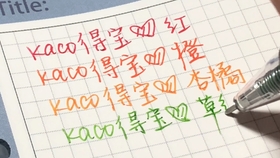 Title:
Kaco得宝 红
Kaco得宝 橙
Kaco得宝 杏橘
Kaco得宝 草